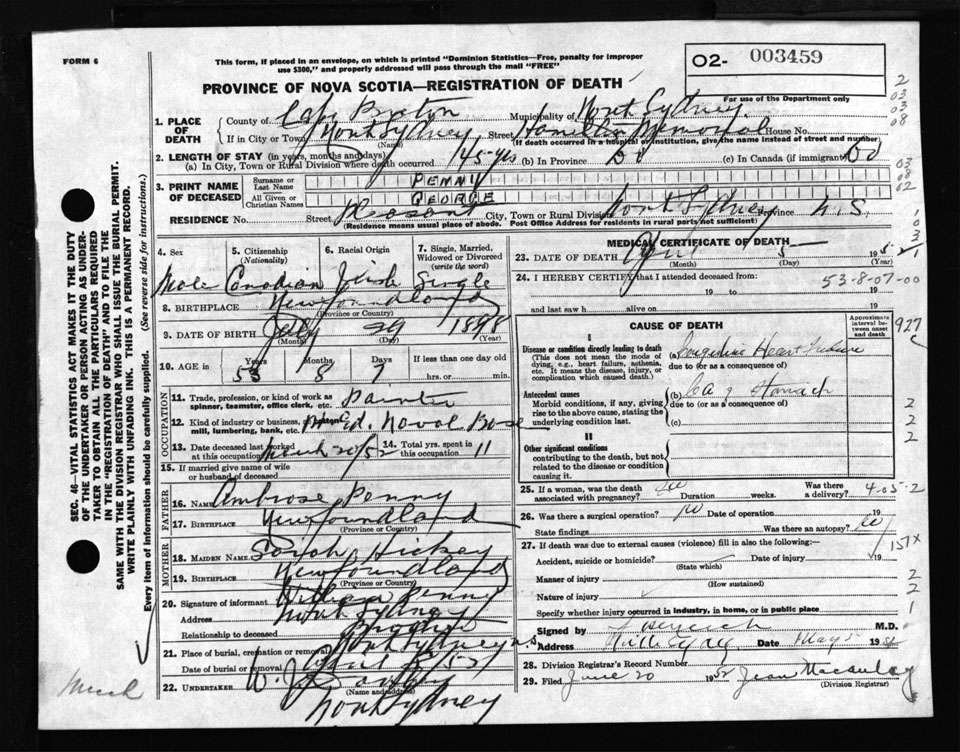 FORM 6
This form, if placed in an envelope, on which is printed "Dominion Statistics—Free, penalty for improper
use $300," and properly addressed will pass through the mail "FREE"
O2- 003459
For use of the Department only
PROVINCE OF NOVA SCOTIA—REGISTRATION OF DEATH
2
03
03
08
1. PLACE OF DEATH
County of Cape Breton Municipality of North Sydney
If in City or Town North Sydney, Street Hamilton Memorial House No.
(Name) (If death occurred in a hospital or institution, give the name instead of street and number)
2. LENGTH OF STAY (in years, months and days)
(a) In City, Town or Rural Division where death occurred 45 yrs (b) In Province Do (c) In Canada (if immigrant) Do
3. PRINT NAME OF DECEASED
Surname or Last Name PENNY
All Given or Christian Names GEORGE
03
08
02
RESIDENCE No. Street City, Town or Rural Division North Sydney Province N.S.
(Residence means usual place of abode. Post Office Address for residents in rural parts not sufficient)
4. Sex
Male
5. Citizenship
(Nationality)
Canadian
6. Racial Origin
Irish
7. Single, Married,
Widowed or Divorced
(write the word)
Single
8. BIRTHPLACE Newfoundland
(Province or Country)
9. DATE OF BIRTH July 29 1898
(Month) (Day) (Year)
10. AGE in
Years Months Days If less than one day old
53 8 7 hrs. or min.
OCCUPATION
11. Trade, profession, or kind of work as
spinner, teamster, office clerk, etc. Painter
12. Kind of industry or business, as
mill, lumbering, bank, etc. Pt Ed. Naval Base
13. Date deceased last worked
at this occupation March 20/52
14. Total yrs. spent in
this occupation 11
15. If married give name of wife
or husband of deceased
FATHER
16. NAME Ambrose Penny
17. BIRTHPLACE Newfoundland
(Province or Country)
MOTHER
18. MAIDEN NAME Sarah Hickey
19. BIRTHPLACE Newfoundland
(Province or Country)
20. Signature of informant William Penny
Address North Sydney
Relationship to deceased Brother
21. Place of burial, cremation or removal North Sydney N.S.
Date of burial or removal April
22. UNDERTAKER W. J.
(Name and address)
North Sydney
MEDICAL CERTIFICATE OF DEATH
23. DATE OF DEATH 5 195
(Month) (Day) (Year)
24. I HEREBY CERTIFY that I attended deceased from:
53-8-07-00
19 to 19
and last saw h alive on 19
CAUSE OF DEATH
Approximate
interval between
onset and death
927
I
Disease or condition directly leading to death
(This does not mean the mode of
dying, e.g., heart failure, asthenia,
etc. It means the disease, injury, or
complication which caused death.)
(a) Congestive Heart Failure
due to (or as a consequence of)
Antecedent causes
Morbid conditions, if any, giving
rise to the above cause, stating the
underlying condition last.
(b) Ca of Stomach
due to (or as a consequence of)
(c)
2
2
2
II
Other significant conditions
contributing to the death, but not
related to the disease or condition
causing it.
25. If a woman, was the death
associated with pregnancy? Duration weeks. Was there
a delivery?
4-05-2
26. Was there a surgical operation? No Date of operation 19
State findings Was there an autopsy? No
151X
27. If death was due to external causes (violence) fill in also the following:—
Accident, suicide or homicide? Date of injury 19
(State which)
Manner of injury
(How sustained)
Nature of injury
Specify whether injury occurred in industry, in home, or in public place
2
2
1
Signed by M.D.
Address Date May 5 1952
28. Division Registrar's Record Number
29. Filed June 20 1952 Jean Macaulay
(Division Registrar)
SEC. 46—VITAL STATISTICS ACT MAKES IT THE DUTY
OF THE UNDERTAKER OR PERSON ACTING AS UNDER-
TAKER TO OBTAIN ALL THE PARTICULARS REQUIRED
IN THE "REGISTRATION OF DEATH" AND TO FILE THE
SAME WITH THE DIVISION REGISTRAR WHO SHALL ISSUE THE BURIAL PERMIT.
WRITE PLAINLY WITH UNFADING INK. THIS IS A PERMANENT RECORD.
Every item of information should be carefully supplied. (See reverse side for instructions.)